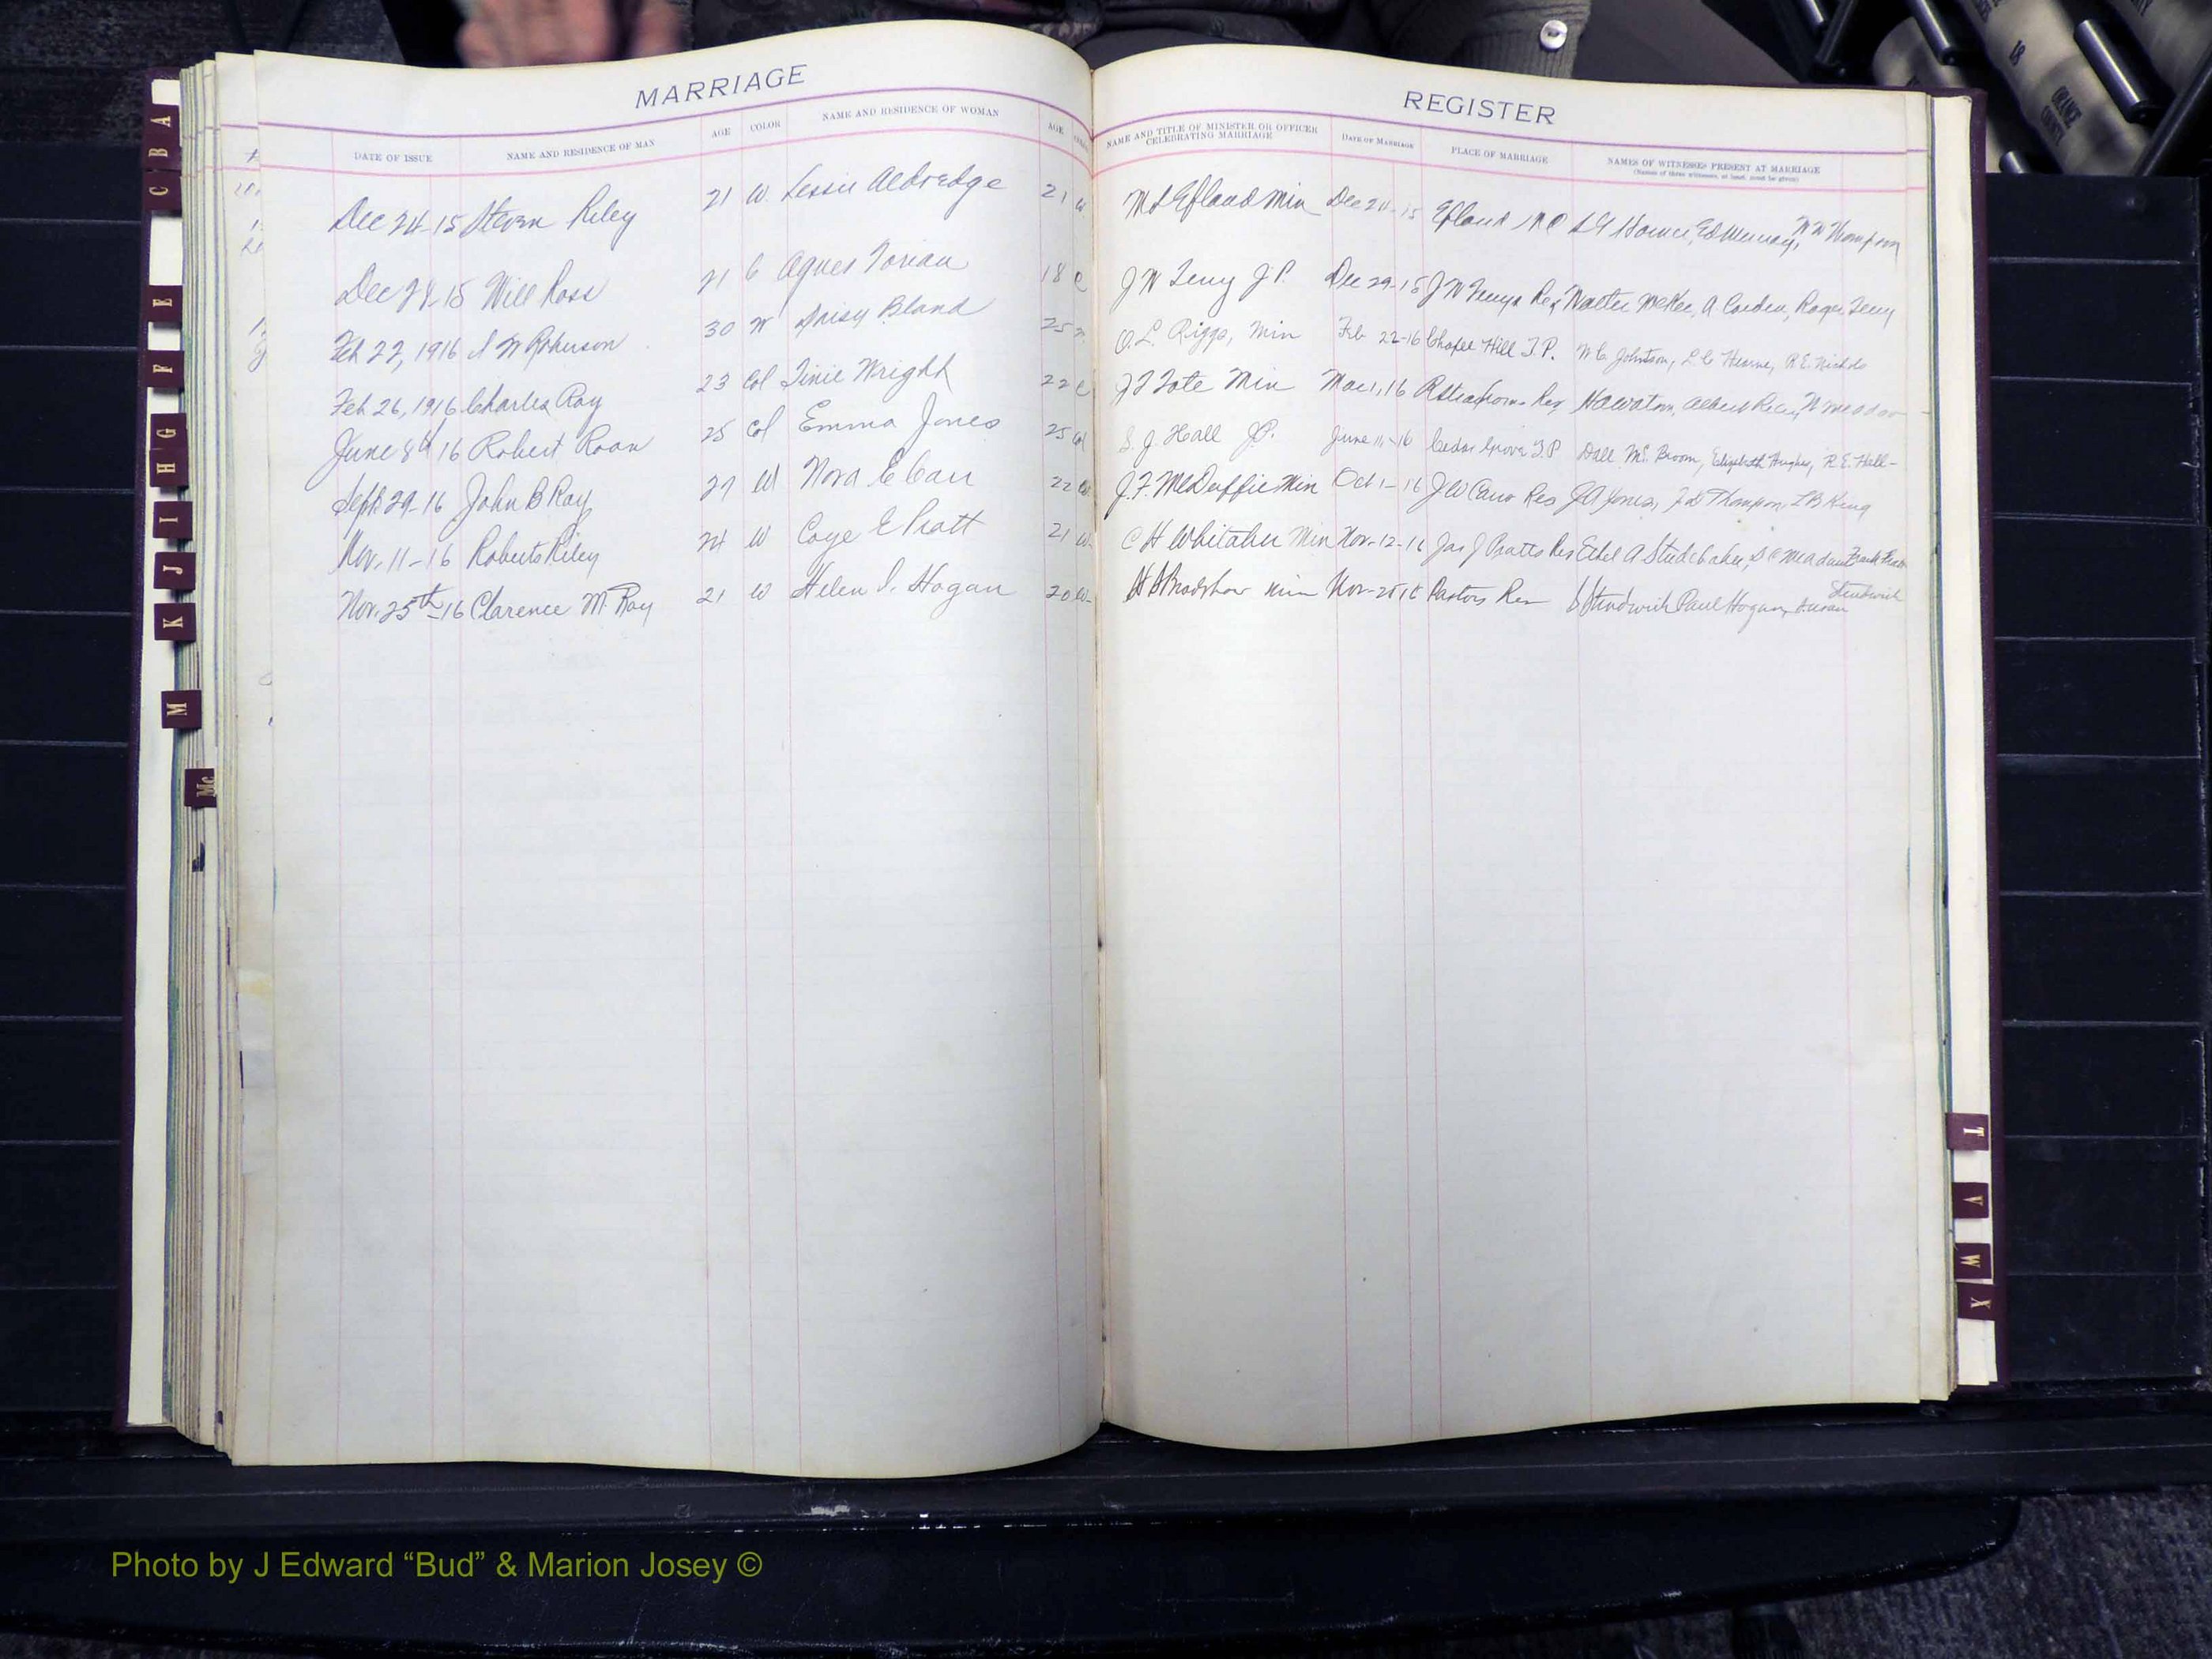 MARRIAGE REGISTER
DATE OF ISSUE NAME AND RESIDENCE OF MAN AGE COLOR NAME AND RESIDENCE OF WOMAN AGE NAME AND TITLE OF MINISTER OR OFFICER CELEBRATING MARRIAGE DATE OF MARRIAGE PLACE OF MARRIAGE NAMES OF WITNESSES PRESENT AT MARRIAGE
(Names of three witnesses, at least, must be given)
Dec 24-15 Riley 21 W Lessie Aldredge 21 W M L Efland Min Dec 24-15 Efland NC Ed Murray, W W Thompson
Dec 28-15 Will Ross 21 C Agnes Torian 18 C J W Terry J.P. Dec 29-15 J W Terrys Res Walter McKee, A Carden, Roger Terry
Feb 22, 1916 N W Roberson 30 W Daisy Bland 25 O.L. Riggs, Min Feb 22-16 Chapel Hill T.P. W C Johnston, L C Hearne, R.E. Nichols
Feb 26, 1916 Charles Ray 23 Col Tinie Wright 22 C J T Tate Min Mac 1, 16 Res N A Watson, Albert
June 8th 16 Robert Roan 25 Col Emma Jones 25 Col S. J. Hall J.P. June 11-16 Cedar Grove T.P Dall McBroom, Elizabeth Hughes, R.E. Hall-
Sept. 29-16 John B Ray 27 W Nora E Carr 22 W J.F. McDuffie Min Oct 1-16 J W Carr Res J A Jones, Thompson, L B King
Nov. 11-16 Roberts Riley 24 W Coye E Pratt 21 W C H Whitaker Min Nov-12-16 Jas J Pratts Res Ethel A Studebaker,
Nov. 25th-16 Clarence M. Ray 21 W Helen I. Hogan 20 W H B Bradshaw Min Nov-25 16 Pastors Res Paul Hogan, Susan
A
B
C
E
F
G
H
I
J
K
M
Mc
T
V
W
X
18
ORANGE
COUNTY
Photo by J Edward “Bud” & Marion Josey ©